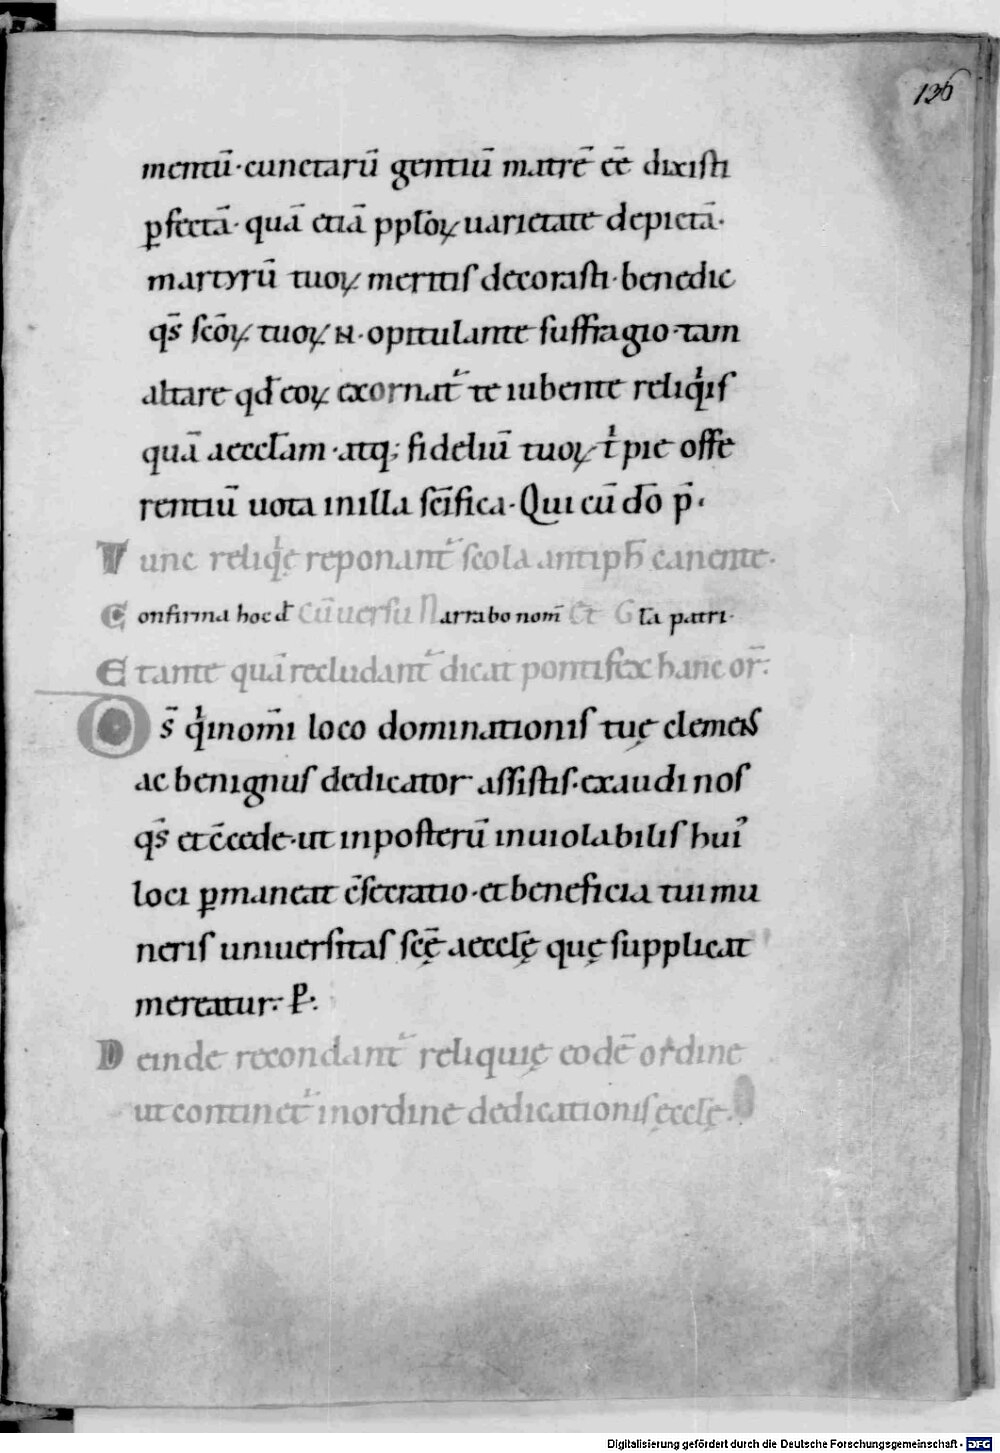 136
mentū· cunctarū gentiū matrē eē dixisti
ꝑfectā· quā etiā ppl̄oꝝ uarietate depictā·
martyrū tuoꝝ meritis decorasti· benedic
qs̄ sc̄oꝝ tuoꝝ N· opitulante suffragio· tam
altare qd̄ eoꝝ exornat᷑ te iubente reliqͥis
quā aeccl̄am· atq; fideliū tuoꝝ tͥ pie offe
rentiū uota in illa sc̄ifica· Qui cū dō p̄·
Tunc reliqͥę reponant᷑ scola antiph̄ canente·
Confirma hoc d̄s cū uersu Narrabo nom̄ Et Gl̄a patri·
Et ante quā recludant᷑ dicat pontifex hanc or̄·
Ds̄ qͥ in om̄i loco dominationis tuę clemens
ac benignus dedicator assistis· exaudi nos
qs̄ et c̄cede· ut in posterū inuiolabilis huiꝰ
loci ꝑmaneat c̄secratio· et beneficia tui mu
neris uniuersitas scę̄ aeccl̄ę quę supplicat
mereatur· P̄·
Deinde recondant᷑ reliquię eodē ordine
ut continet᷑ in ordine dedicationis ęccl̄ę·
Digitalisierung gefördert durch die Deutsche Forschungsgemeinschaft - DFG